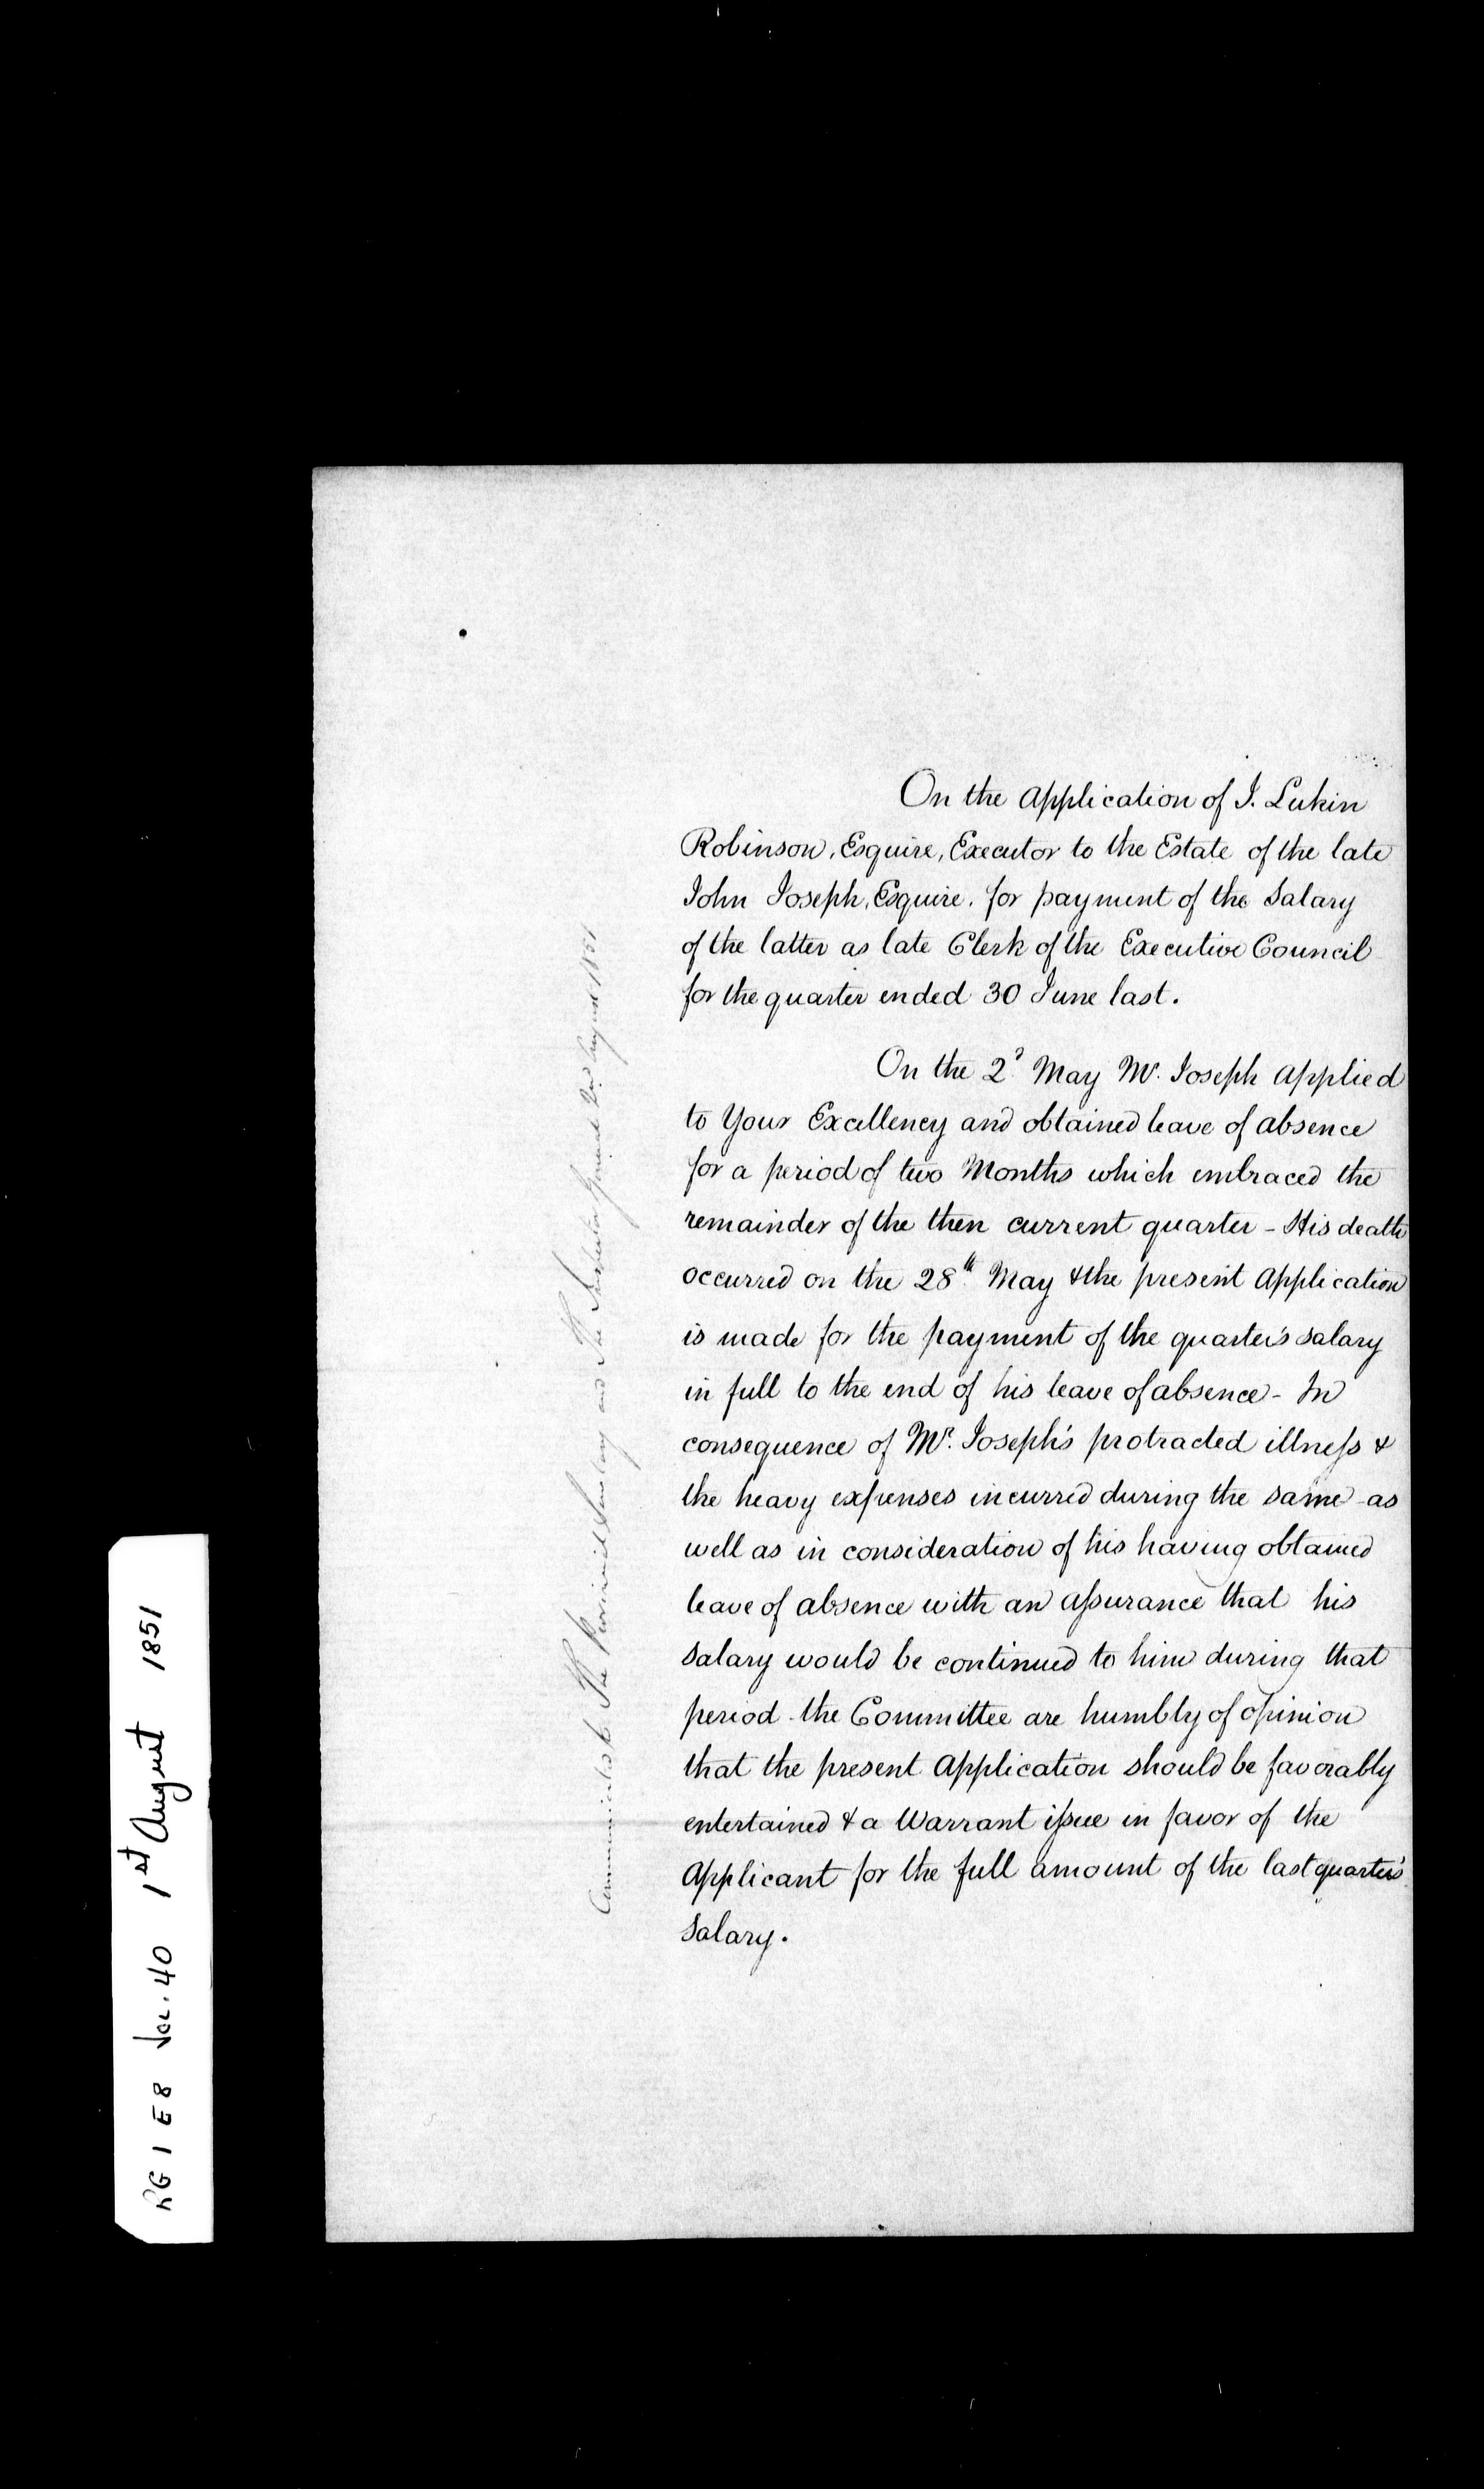 On the Application of J. Lukin
Robinson, Esquire, Executor to the Estate of the late
John Joseph, Esquire. for payment of the Salary
of the latter as late Clerk of the Executive Council
for the quarter ended 30 June last.
On the 2d May Mr. Joseph applied
to Your Excellency and obtained leave of absence
for a period of two Months which embraced the
remainder of the then current quarter - His death
occurred on the 28th May & the present Application
is made for the payment of the quarter's salary
in full to the end of his leave of absence - In
consequence of Mr. Joseph's protracted illness &
the heavy expenses incurred during the same - as
well as in consideration of his having obtained
leave of absence with an assurance that his
salary would be continued to him during that
period - the Committee are humbly of opinion
that the present Application should be favorably
entertained & a Warrant issue in favor of the
Applicant for the full amount of the last quarter's
Salary.
Communicated to The Provincial Secretary and The Inspector General 2nd August 1851
RG 1 E8 Vol. 40 1st August 1851